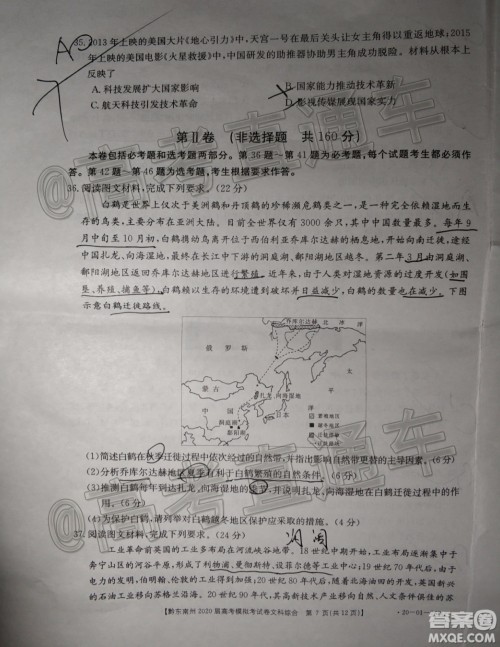 35. 2013年上映的美国大片《地心引力》中,天宫一号在最后关头让女主角得以重返地球;2015
年上映的美国电影《火星救援》中,中国研发的助推器协助男主角成功脱险。材料从根本上
反映了
A. 科技发展扩大国家影响 B. 国家能力推动技术革新
C. 航天科技引发技术革命 D. 影视传媒展现国家实力
第Ⅱ卷 (非选择题 共160分)
本卷包括必考题和选考题两部分。第36题～第41题为必考题,每个试题考生都必须作
答。第42题～第46题为选考题,考生根据要求作答。
36. 阅读图文材料,完成下列要求。(22分)
白鹤是世界上仅次于美洲鹤和丹顶鹤的珍稀濒危鹤类之一,是一种完全依赖湿地而生
存的鸟类,主要分布在亚洲大陆。目前全世界仅有3000余只,其中中国数量最多。每年9
月中旬至10月初,白鹤携幼鸟离开位于西伯利亚乔库尔达赫的栖息地,开始向南迁徙,途经
中国扎龙、向海湿地,最终在长江中下游的洞庭湖、鄱阳湖地区越冬。第二年3月由洞庭湖、
鄱阳湖地区返回乔库尔达赫地区进行繁殖。近年来,由于人类对湿地资源的过度开发(如围
垦、养殖、捕鱼等),白鹤赖以生存的环境遭到破坏并日益减少,白鹤的数量也在减少。下图
示意白鹤迁徙路线。
乔库尔达赫 北 冰 洋
俄 罗 斯
蒙古
扎龙、向海湿地
中 国
日本
太 平 洋
洞庭湖
鄱阳湖
(1)简述白鹤在秋季迁徙过程中依次经过的自然带,并指出影响自然带更替的主导因素。(6分)
(2)分析乔库尔达赫地区夏季有利于白鹤繁殖的自然条件。(6分)
(3)推测白鹤每年到达扎龙、向海湿地的季节,并说出扎龙、向海湿地在白鹤迁徙过程中的作用。(6分)
(4)为保护白鹤,请列举对白鹤越冬地区保护应采取的措施。(4分)
37. 阅读图文材料,完成下列要求。(24分)
工业革命前英国的工业多布局在河流峡谷地带。18世纪中期工业革命开始后,英国的
工业大多布局在煤炭产地附近,出现了利物浦、曼彻斯特、设菲尔德等工业中心;19世纪70年代,由
于电力的发明,伯明翰、伦敦成为新的工业中心;20世纪70年代,英国高科技工业开始由传
统的工业中心迁移至苏格兰沿海。20世纪90年代,其高新技术产业
【黔东南州2020届高考模拟考试卷文科综合 第7页(共12页)】 ·20-01-
高考直通车
答案圈